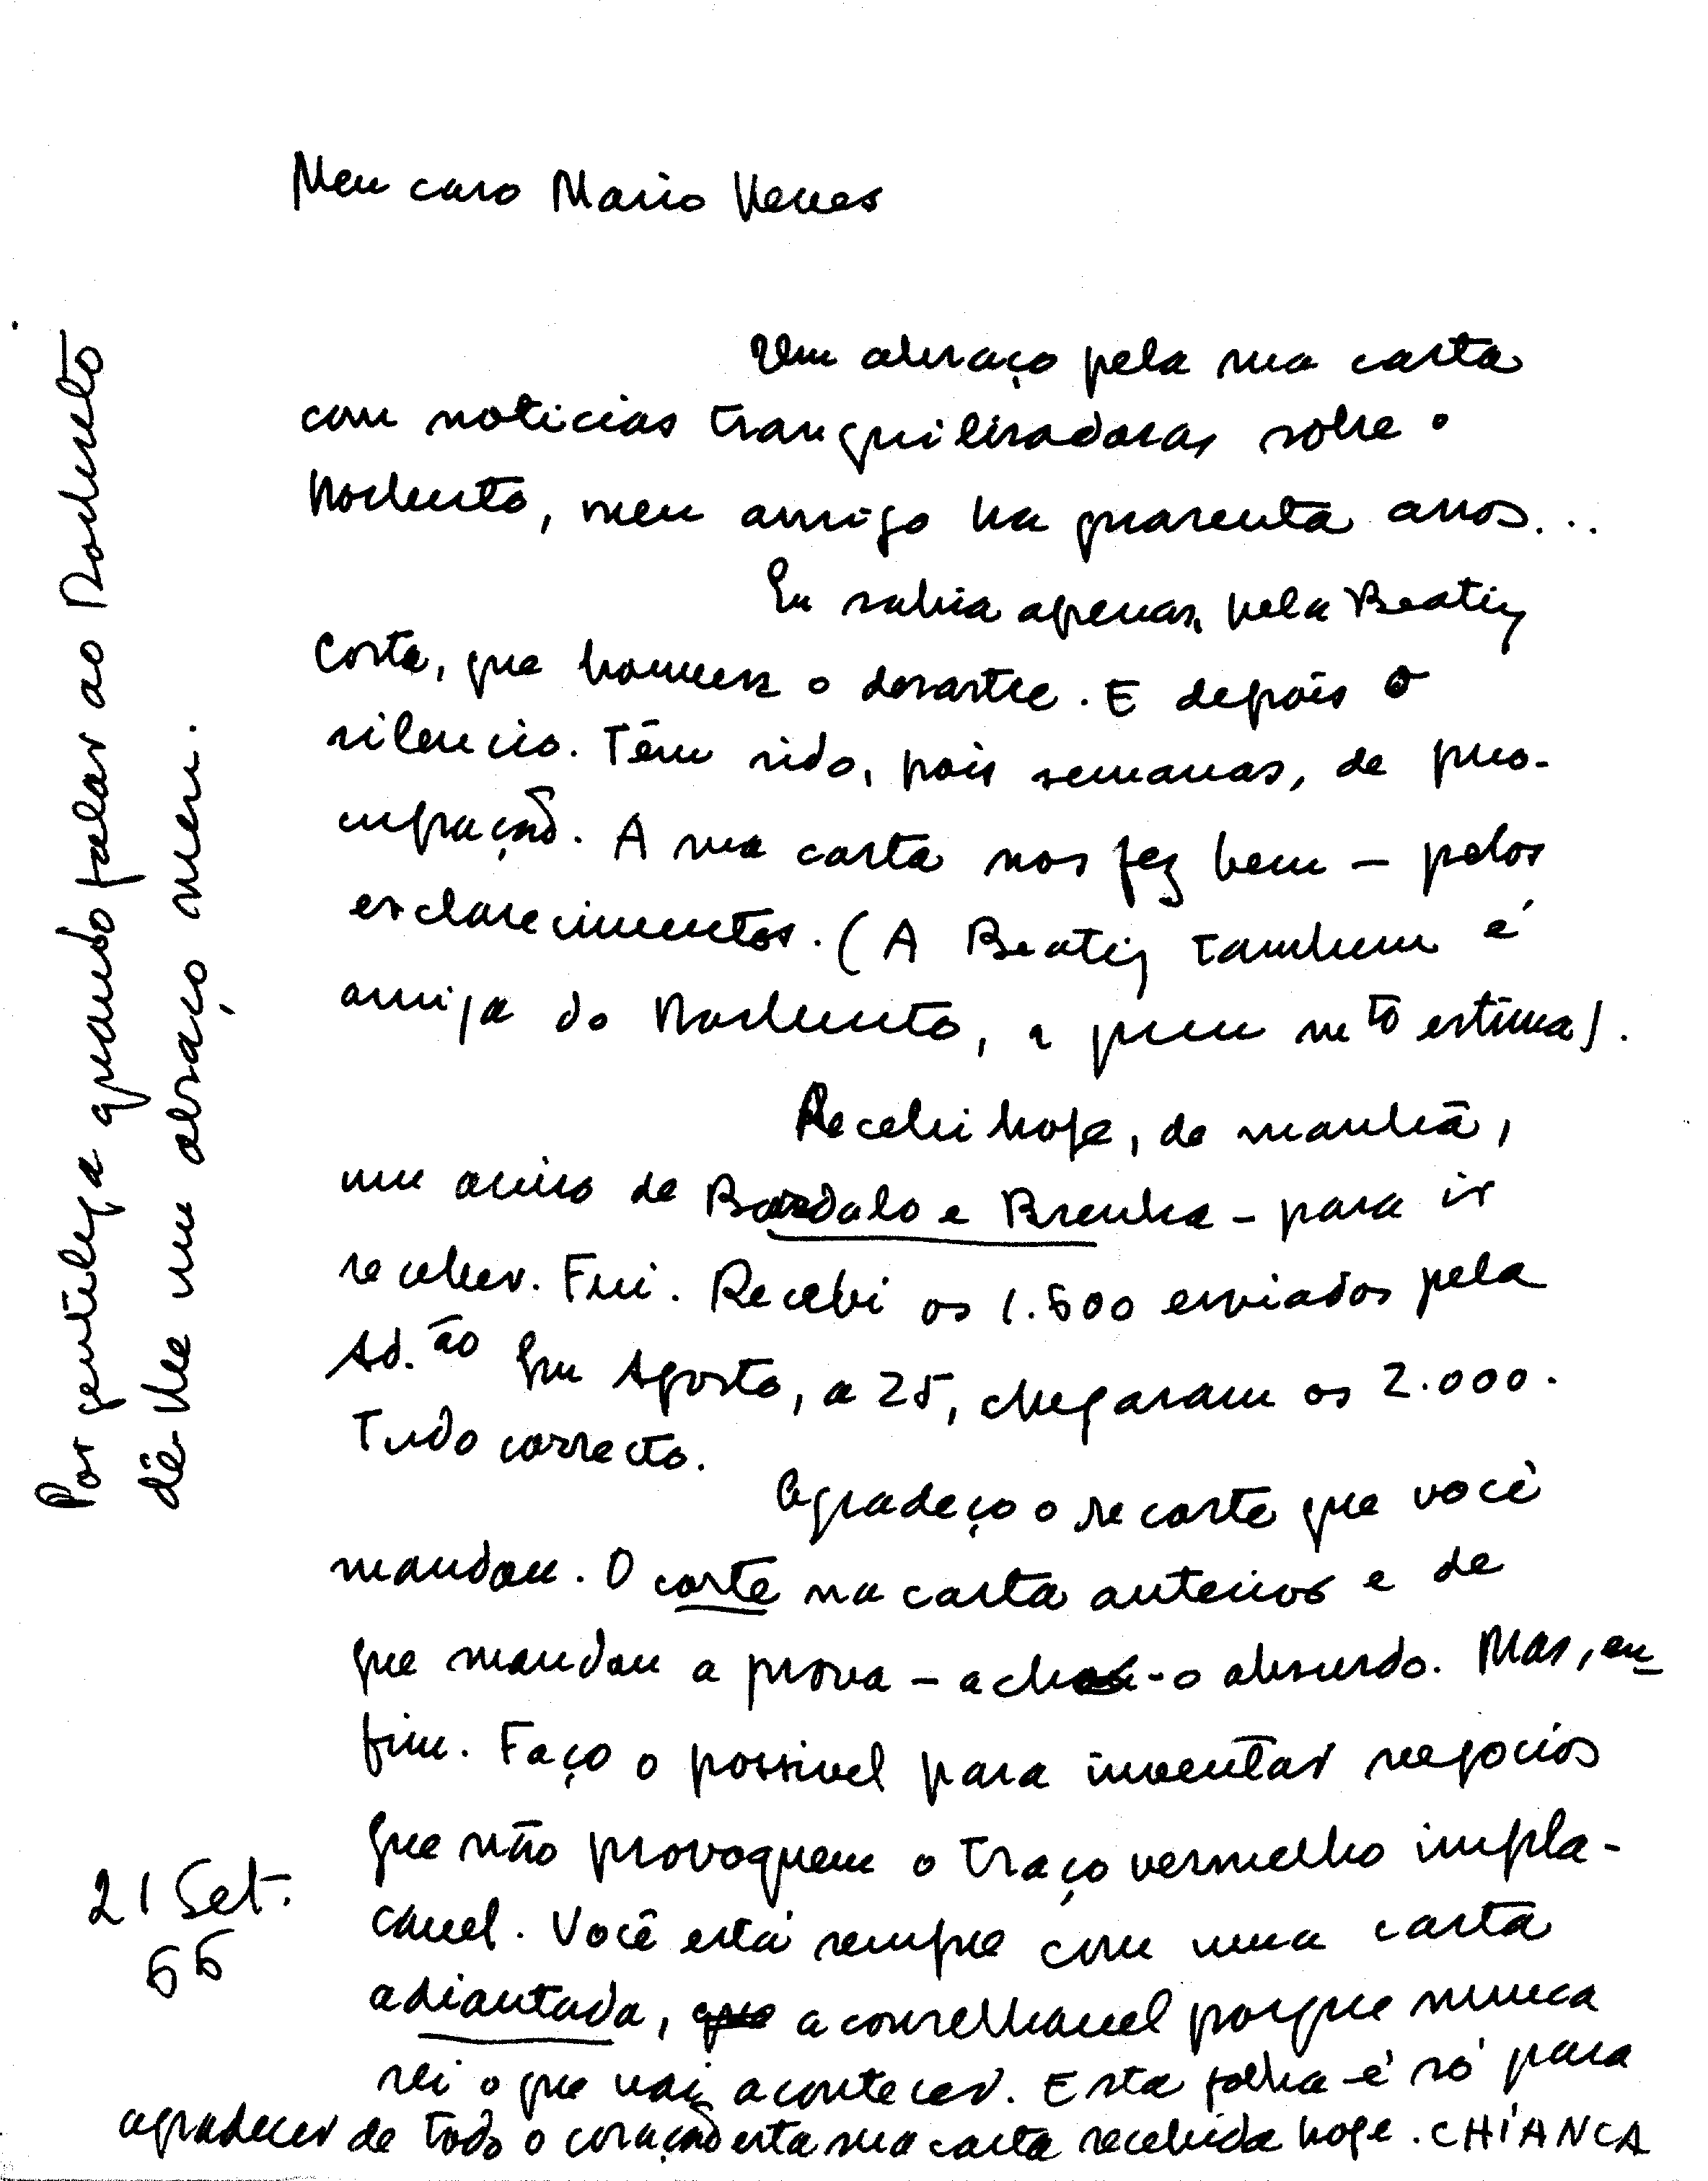 Meu caro Mario Neves
Um abraço pela sua carta
com noticias tranquilisadoras sobre o
Norberto, meu amigo ha quarenta anos...
Eu sabia apenas, pela Beatriz
Costa, que houvera o desastre. E depois o
silencio. Têm sido, pois semanas, de preo-
cupação. A sua carta nos fez bem — pelos
esclarecimentos. (A Beatriz tambem é
amiga do Norberto, a quem mto estima).
Recebi hoje, de manhã,
um aviso de Bordalo e Brenha - para ir
receber. Fui. Recebi os 1.500 enviados pela
Ad.ão Em Agosto, a 25, chegaram os 2.000.
Tudo correcto.
Agradeço o recorte que você
mandou. O corte na carta anterior e de
que mandou a prova — achei-o absurdo. Mas, en-
fim. Faço o possivel para inventar negocios
que não provoquem o traço vermelho impla-
cavel. Você está sempre com uma carta
adiantada, que aconselhavel porque nunca
sei o que vai acontecer. Esta folha é só para
agradecer de todo o coração esta sua carta recebida hoje. CHIANCA
21 Set.
66
Por gentileza quando falar ao Norberto
dê-lhe um abraço meu.